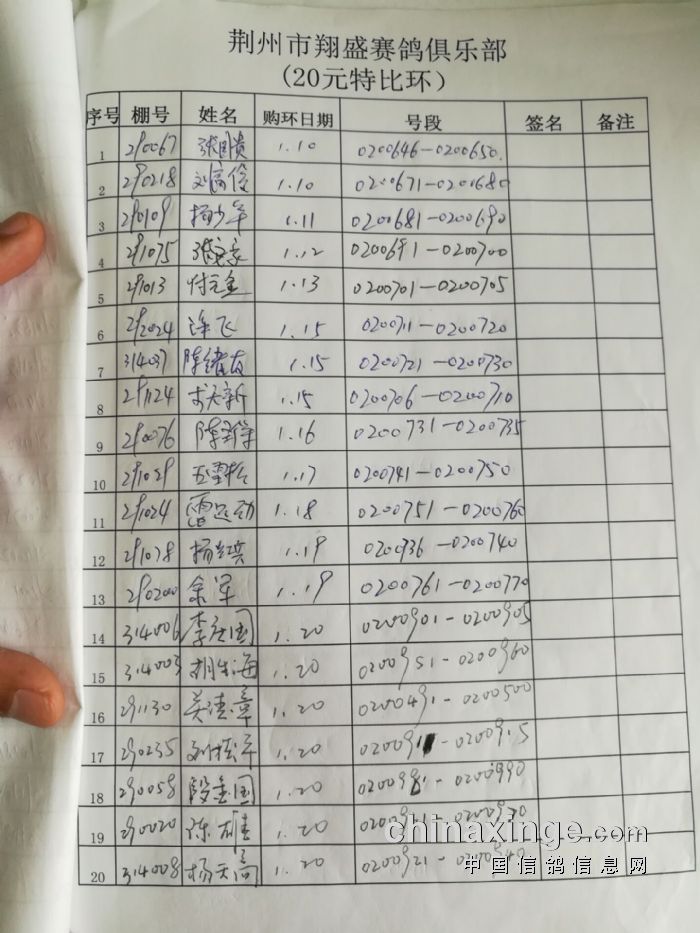 荆州市翔盛赛鸽俱乐部
(20元特比环)
序号 棚号 姓名 购环日期 号段 签名 备注
1 290067 1.10 0200646-0200650
2 290218 刘高俊 1.10 0200671-0200680
3 290109 杨少军 1.11 0200681-0200690
4 291075 1.12 0200691-0200700
5 291013 付元金 1.13 0200701-0200705
6 292024 涂飞 1.15 0200711-0200720
7 314037 陈绪友 1.15 0200721-0200730
8 291124 1.15 0200706-0200710
9 290076 1.16 0200731-0200735
10 291029 1.17 0200741-0200750
11 291024 雷运动 1.18 0200751-0200760
12 291078 1.19 0200736-0200740
13 290200 余军 1.19 0200761-0200770
14 314006 1.20 0200901-0200905
15 314003 1.20 0200951-0200960
16 291130 1.20 0200491-0200500
17 290235 1.20 -0200915
18 290058 段金国 1.20 0200981-0200990
19 290020 陈雄 1.20
20 314008 杨天高 1.20
chinaxinge.com
中国信鸽信息网